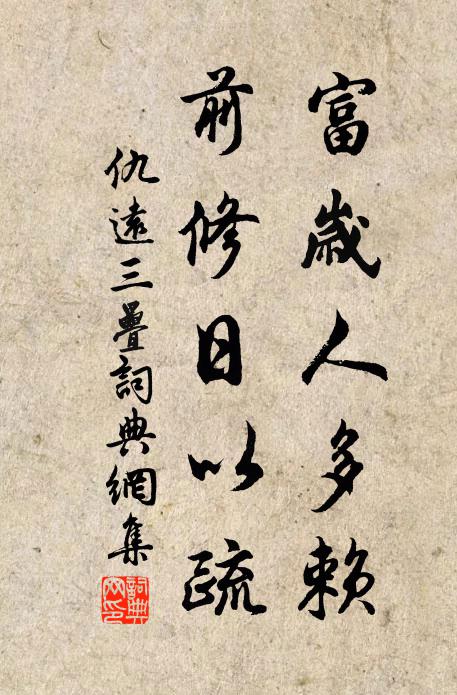 富歲人多賴
前修日以疏
仇遠三疊詞典網集
詞典網印